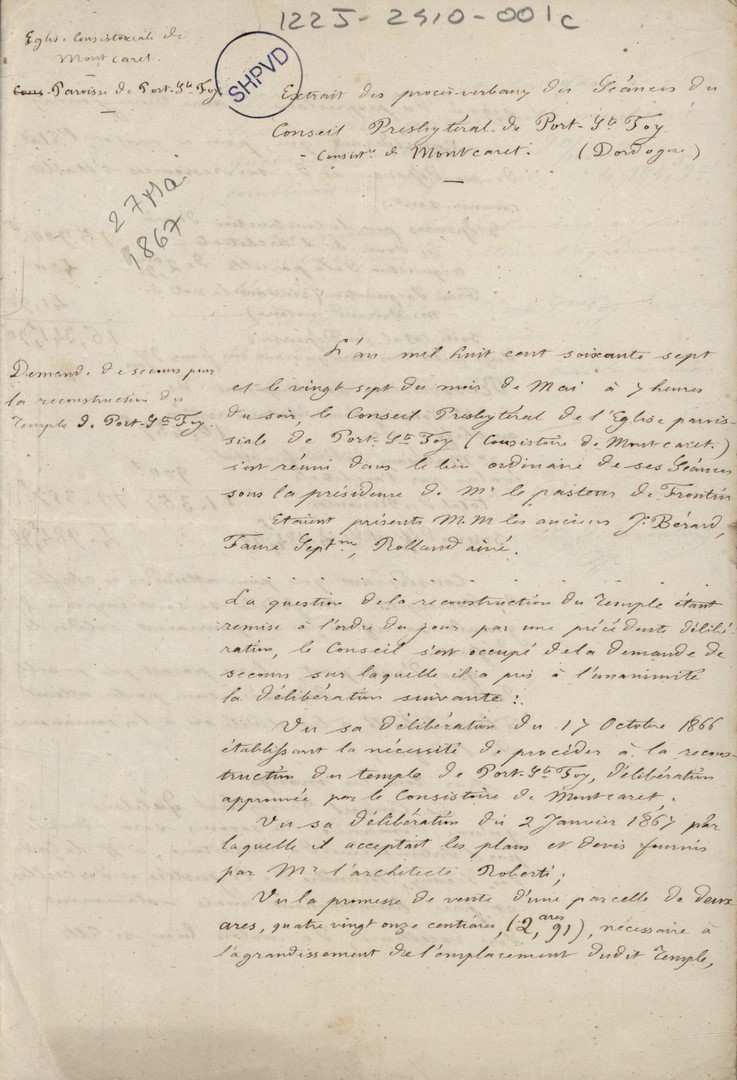 1225-2910-001c
Eglise Consistoriale de
Montcaret.
Paroisse de Port-Ste Foy.
SHPVD
Extrait des procès-verbaux des Séances du
Conseil Presbytéral de Port-Ste Foy
- Consistre de Montcaret. (Dordogne)
27 Mai
1867
Demande de secours pour
la reconstruction du
Temple de Port-Ste Foy.
L'an mil huit cent soixante sept
et le vingt sept du mois de Mai à 7 heures
du soir, le Conseil Presbytéral de l'Eglise parois-
siale de Port-Ste Foy (Consistoire de Montcaret.)
s'est réuni dans le lieu ordinaire de ses Séances
sous la présidence de Mr le pasteur de Frontin
Etaient présents M.M. les anciens Jn Bérard,
Faure Septme, Rolland ainé.
La question de la reconstruction du Temple étant
remise à l'ordre du jour par une précédente délibé-
ration, le Conseil s'est occupé de la demande de
secours sur laquelle il a pris à l'unanimité
la délibération suivante :
Vu sa délibération du 17 Octobre 1866
établissant la nécessité de procéder à la recons-
truction du temple de Port-Ste Foy, délibération
approuvée par le Consistoire de Montcaret,
Vu sa délibération du 2 Janvier 1867 par
laquelle il acceptait les plans et devis fournis
par Mr l'architecte Roberti ;
Vu la promesse de vente d'une parcelle de deux
ares, quatre vingt onze centiares, (2 ares, 91), nécessaire à
l'agrandissement de l'emplacement dudit Temple,